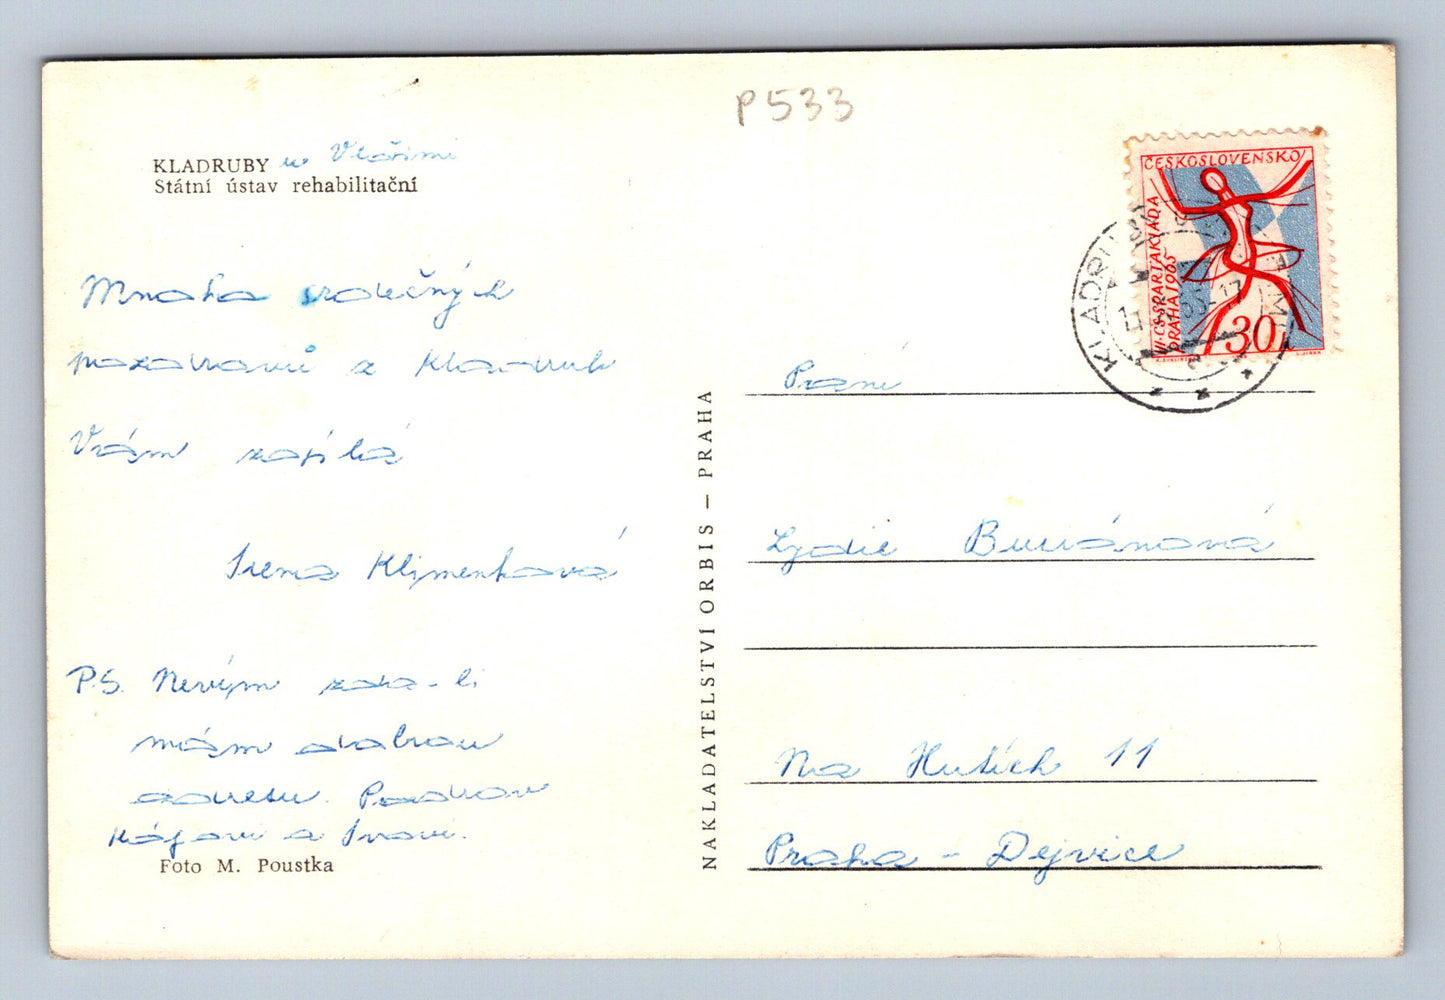 P533
KLADRUBY u Vlašimi
Státní ústav rehabilitační
Mnoho srdečných
pozdravů z Kladrub
Vám zasílá
Irena Klimenková
P.S. Nevím zda-li
mám dobrou
adresu. Pozdrav
a
Foto M. Poustka
NAKLADATELSTVÍ ORBIS – PRAHA
ČESKOSLOVENSKO
III. CS. SPARTAKIÁDA
PRAHA 1965
30
KLADRUBY
Paní
Lydie Buriánová
Na Hutích 11
Praha - Dejvice